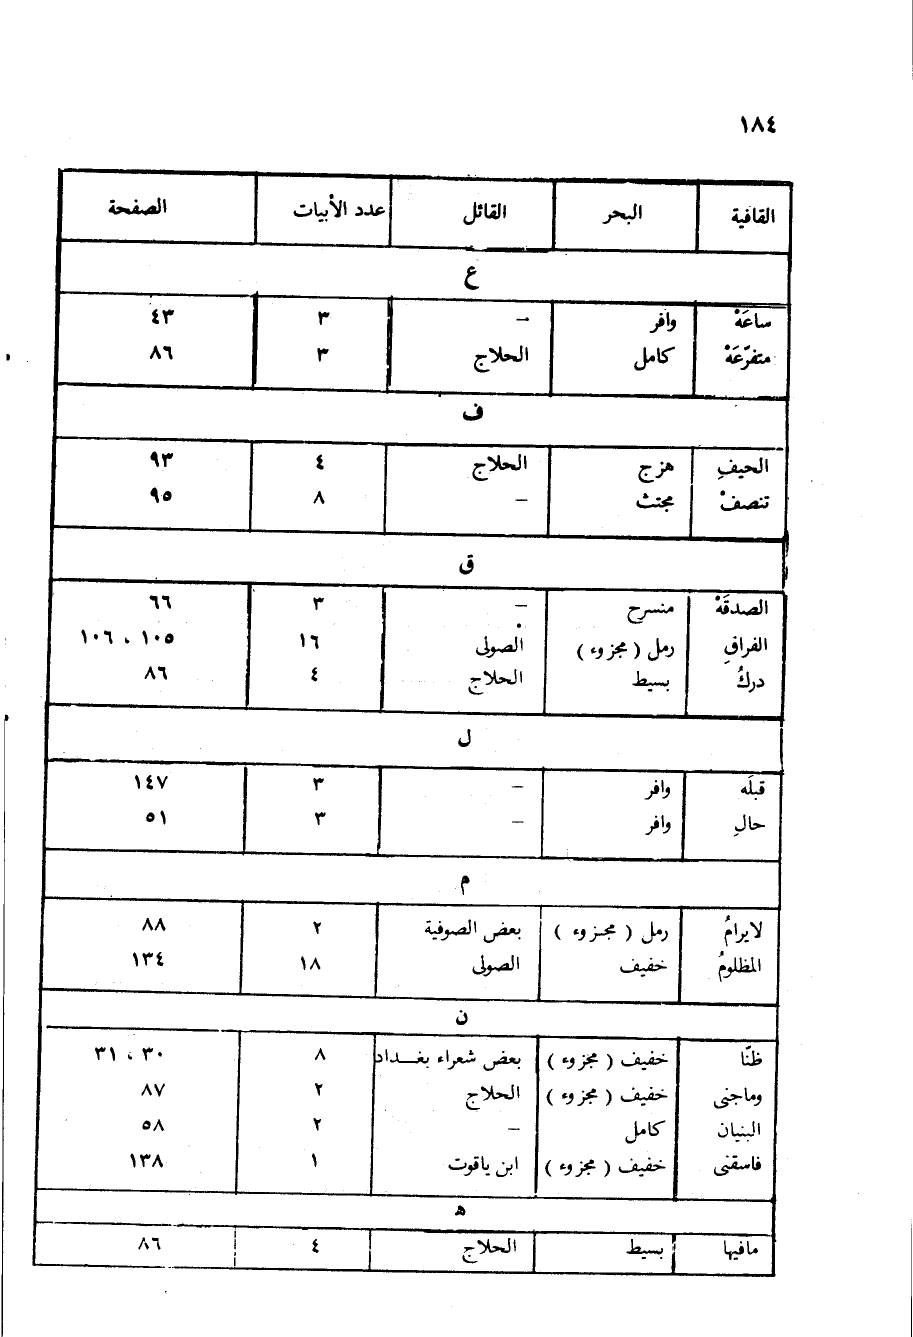 ١٨٤
القافية البحر القائل عدد الأبيات الصفحة
ع
ساعَهْ وافر – ٣ ٤٣
متفرّعَهْ كامل الحلاج ٣ ٨٦
ف
الحيفِ هزج الحلاج ٤ ٩٣
تنصفْ مجتث – ٨ ٩٥
ق
الصدقَهْ منسرح – ٣ ٦٦
الفراقِ رمل ( مجزوء ) الصولى ١٦ ١٠٥ ، ١٠٦
دركُ بسيط الحلاج ٤ ٨٦
ل
قبلَه وافر – ٣ ١٤٧
حالِ وافر – ٣ ٥١
م
لايرامُ رمل ( مجزوء ) بعض الصوفية ٢ ٨٨
المظلومُ خفيف الصولى ١٨ ١٣٤
ن
ظنّا خفيف ( مجزوء ) بعض شعراء بغداد ٨ ٣٠ ، ٣١
وماجنى خفيف ( مجزوء ) الحلاج ٢ ٨٧
البنيان كامل – ٢ ٥٨
فاسقنى خفيف ( مجزوء ) ابن ياقوت ١ ١٣٨
ه
مافيها بسيط الحلاج ٤ ٨٦